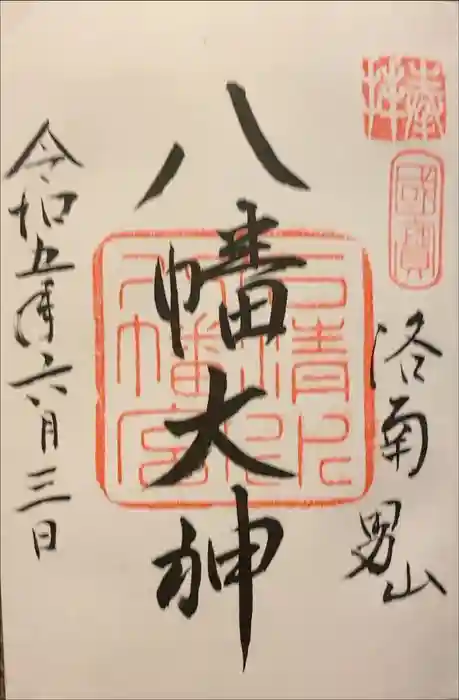 奉拝
國寶
洛南 男山
八幡大神
石清水八幡宮
令和五年六月三日